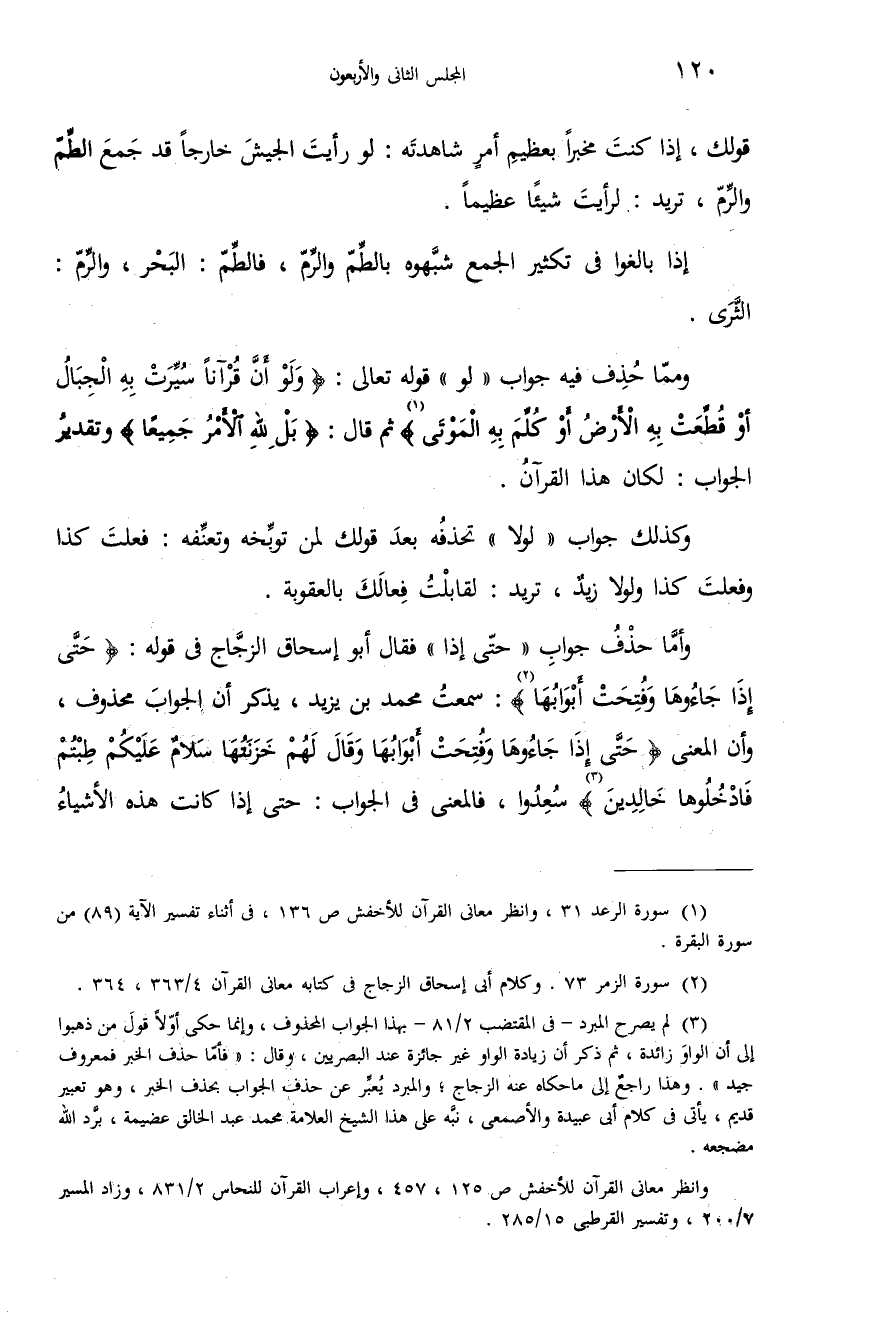 ١٢٠
المجلس الثانى والأربعون
قولك ، إذا كنتَ مخبراً بعظيمِ أمرٍ شاهدتَه : لو رأيتَ الجيشَ خارجاً قد جَمعَ الطِّمّ
والرِّمّ ، تريد : لرأيتَ شيئًا عظيماً .
إذا بالغوا فى تكثير الجمع شبَّهوه بالطِّمّ والرِّمّ ، فالطِّمّ : البَحْر ، والرِّمّ :
الثَّرَى .
وممّا حُذِف فيه جواب « لو » قوله تعالى : ﴿ وَلَوْ أَنَّ قُرْآناً سُيِّرَتْ بِهِ الْجِبَالُ
أوْ قُطِّعَتْ بِهِ الْأَرْضُ أَوْ كُلِّمَ بِهِ الْمَوْتَى ﴾(١) ثم قال : ﴿ بَلْ لِلّهِ ٱلْأَمْرُ جَمِيعًا ﴾ وتقديرُ
الجواب : لكان هذا القرآنُ .
وكذلك جواب « لولا » تحذفُه بعدَ قولك لمن توبِّخه وتعنِّفه : فعلتَ كذا
وفعلتَ كذا ولولا زيدٌ ، تريد : لقابلْتُ فِعالَكَ بالعقوبة .
وأمَّا حذْفُ جوابِ « حتّى إذا » فقال أبو إسحاق الزجَّاج فى قوله : ﴿ حَتَّى
إِذَا جَاءُوهَا وَفُتِحَتْ أَبْوَابُهَا ﴾(٢) : سمعتُ محمد بن يزيد ، يذكر أن الجوابَ محذوف ،
وأن المعنى ﴿ حَتَّى إِذَا جَاءُوهَا وَفُتِحَتْ أَبْوَابُهَا وَقَالَ لَهُمْ خَزَنَتُهَا سَلَامٌ عَلَيْكُمْ طِبْتُمْ
فَادْخُلُوها خَالِدِينَ ﴾(٣) سُعِدُوا ، فالمعنى فى الجواب : حتى إذا كانت هذه الأشياءُ
(١) سورة الرعد ٣١ ، وانظر معانى القرآن للأخفش ص ١٣٦ ، فى أثناء تفسير الآية (٨٩) من
سورة البقرة .
(٢) سورة الزمر ٧٣ . وكلام أبى إسحاق الزجاج فى كتابه معانى القرآن ٣٦٣/٤ ، ٣٦٤ .
(٣) لم يصرح المبرد – فى المقتضب ٨١/٢ – بهذا الجواب المحذوف ، وإنما حكى أوّلاً قولَ من ذهبوا
إلى أن الواوَ زائدة ، ثم ذكر أن زيادة الواو غير جائزة عند البصريين ، وقال : « فأمّا حذف الخبر فمعروف
جيد » . وهذا راجعٌ إلى ماحكاه عنه الزجاج ؛ والمبرد يُعبِّر عن حذف الجواب بحذف الخبر ، وهو تعبير
قديم ، يأتى فى كلام أبى عبيدة والأصمعى ، نبَّه على هذا الشيخ العلامة محمد عبد الخالق عضيمة ، برَّد الله
مضجعه .
وانظر معانى القرآن للأخفش ص ١٢٥ ، ٤٥٧ ، وإعراب القرآن للنحاس ٨٣١/٢ ، وزاد المسير
٢٠٠/٧ ، وتفسير القرطبى ٢٨٥/١٥ .